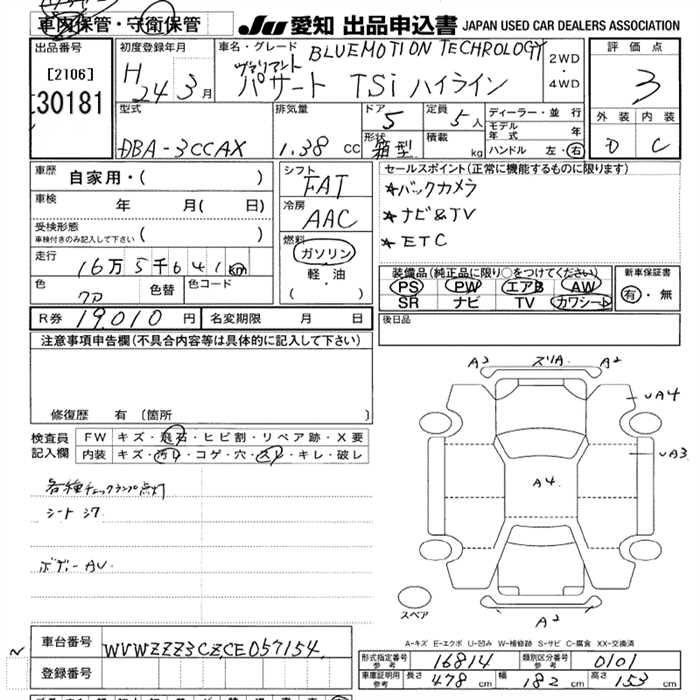 車内保管・守衛保管
JU 愛知 出品申込書 JAPAN USED CAR DEALERS ASSOCIATION
出品番号
[2106]
30181
初度登録年月
H 24 3月
車名・グレード BLUEMOTION TECHROLOGY
ヴァリアント
パサート TSi ハイライン
2WD
・
4WD
評価点
3
外装 内装
D C
型式
DBA-3CCAX
排気量
1.38 cc
ドア
5
定員
5人
形状
箱型
積載
kg
ディーラー・並行
モデル年式 年
ハンドル 左・右
車歴 自家用・( )
車検 年 月( 日)
受検形態
車検付きのみ記入して下さい ( )
走行 16万5千641km
色 色替 色コード
シフト
FAT
冷房
AAC
燃料
ガソリン
軽・油
( )
セールスポイント(正常に機能するものに限ります)
*バックカメラ
*ナビ&TV
*ETC
装備品(純正品に限り○をつけてください)
PS PW エアB AW
SR ナビ TV カワシート
新車保証書
有・無
R券 19,010円 名変期限 月 日
後日品
注意事項申告欄(不具合内容等は具体的に記入して下さい)
修復歴 有〔箇所 〕
検査員記入欄
FW キズ・飛石・ヒビ割・リペア跡・X要
内装 キズ・汚レ・コゲ・穴・スレ・キレ・破レ
各種チェックランプ点灯
シート シワ
ボデー AU
A2 ズリA A2
UA4
UA3
A4
スペア
A2
A-キズ E-エクボ U-凹み W-補修跡 S-サビ C-腐食 XX-交換済
車台番号 WVWZZZ3CZCE057154
登録番号
形式指定番号 参考 16814 類別区分番号 参考 0101
車庫証明用 参考 長さ 478cm 幅 182cm 高さ 153cm